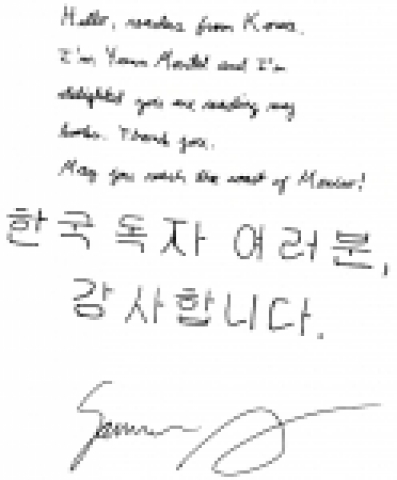 Hello, readers from Korea.
I'm Yann Martel and I'm
delighted you are reading my
books. Thank you.
May you reach the coast of Mexico!
한국 독자 여러분,
감사합니다.